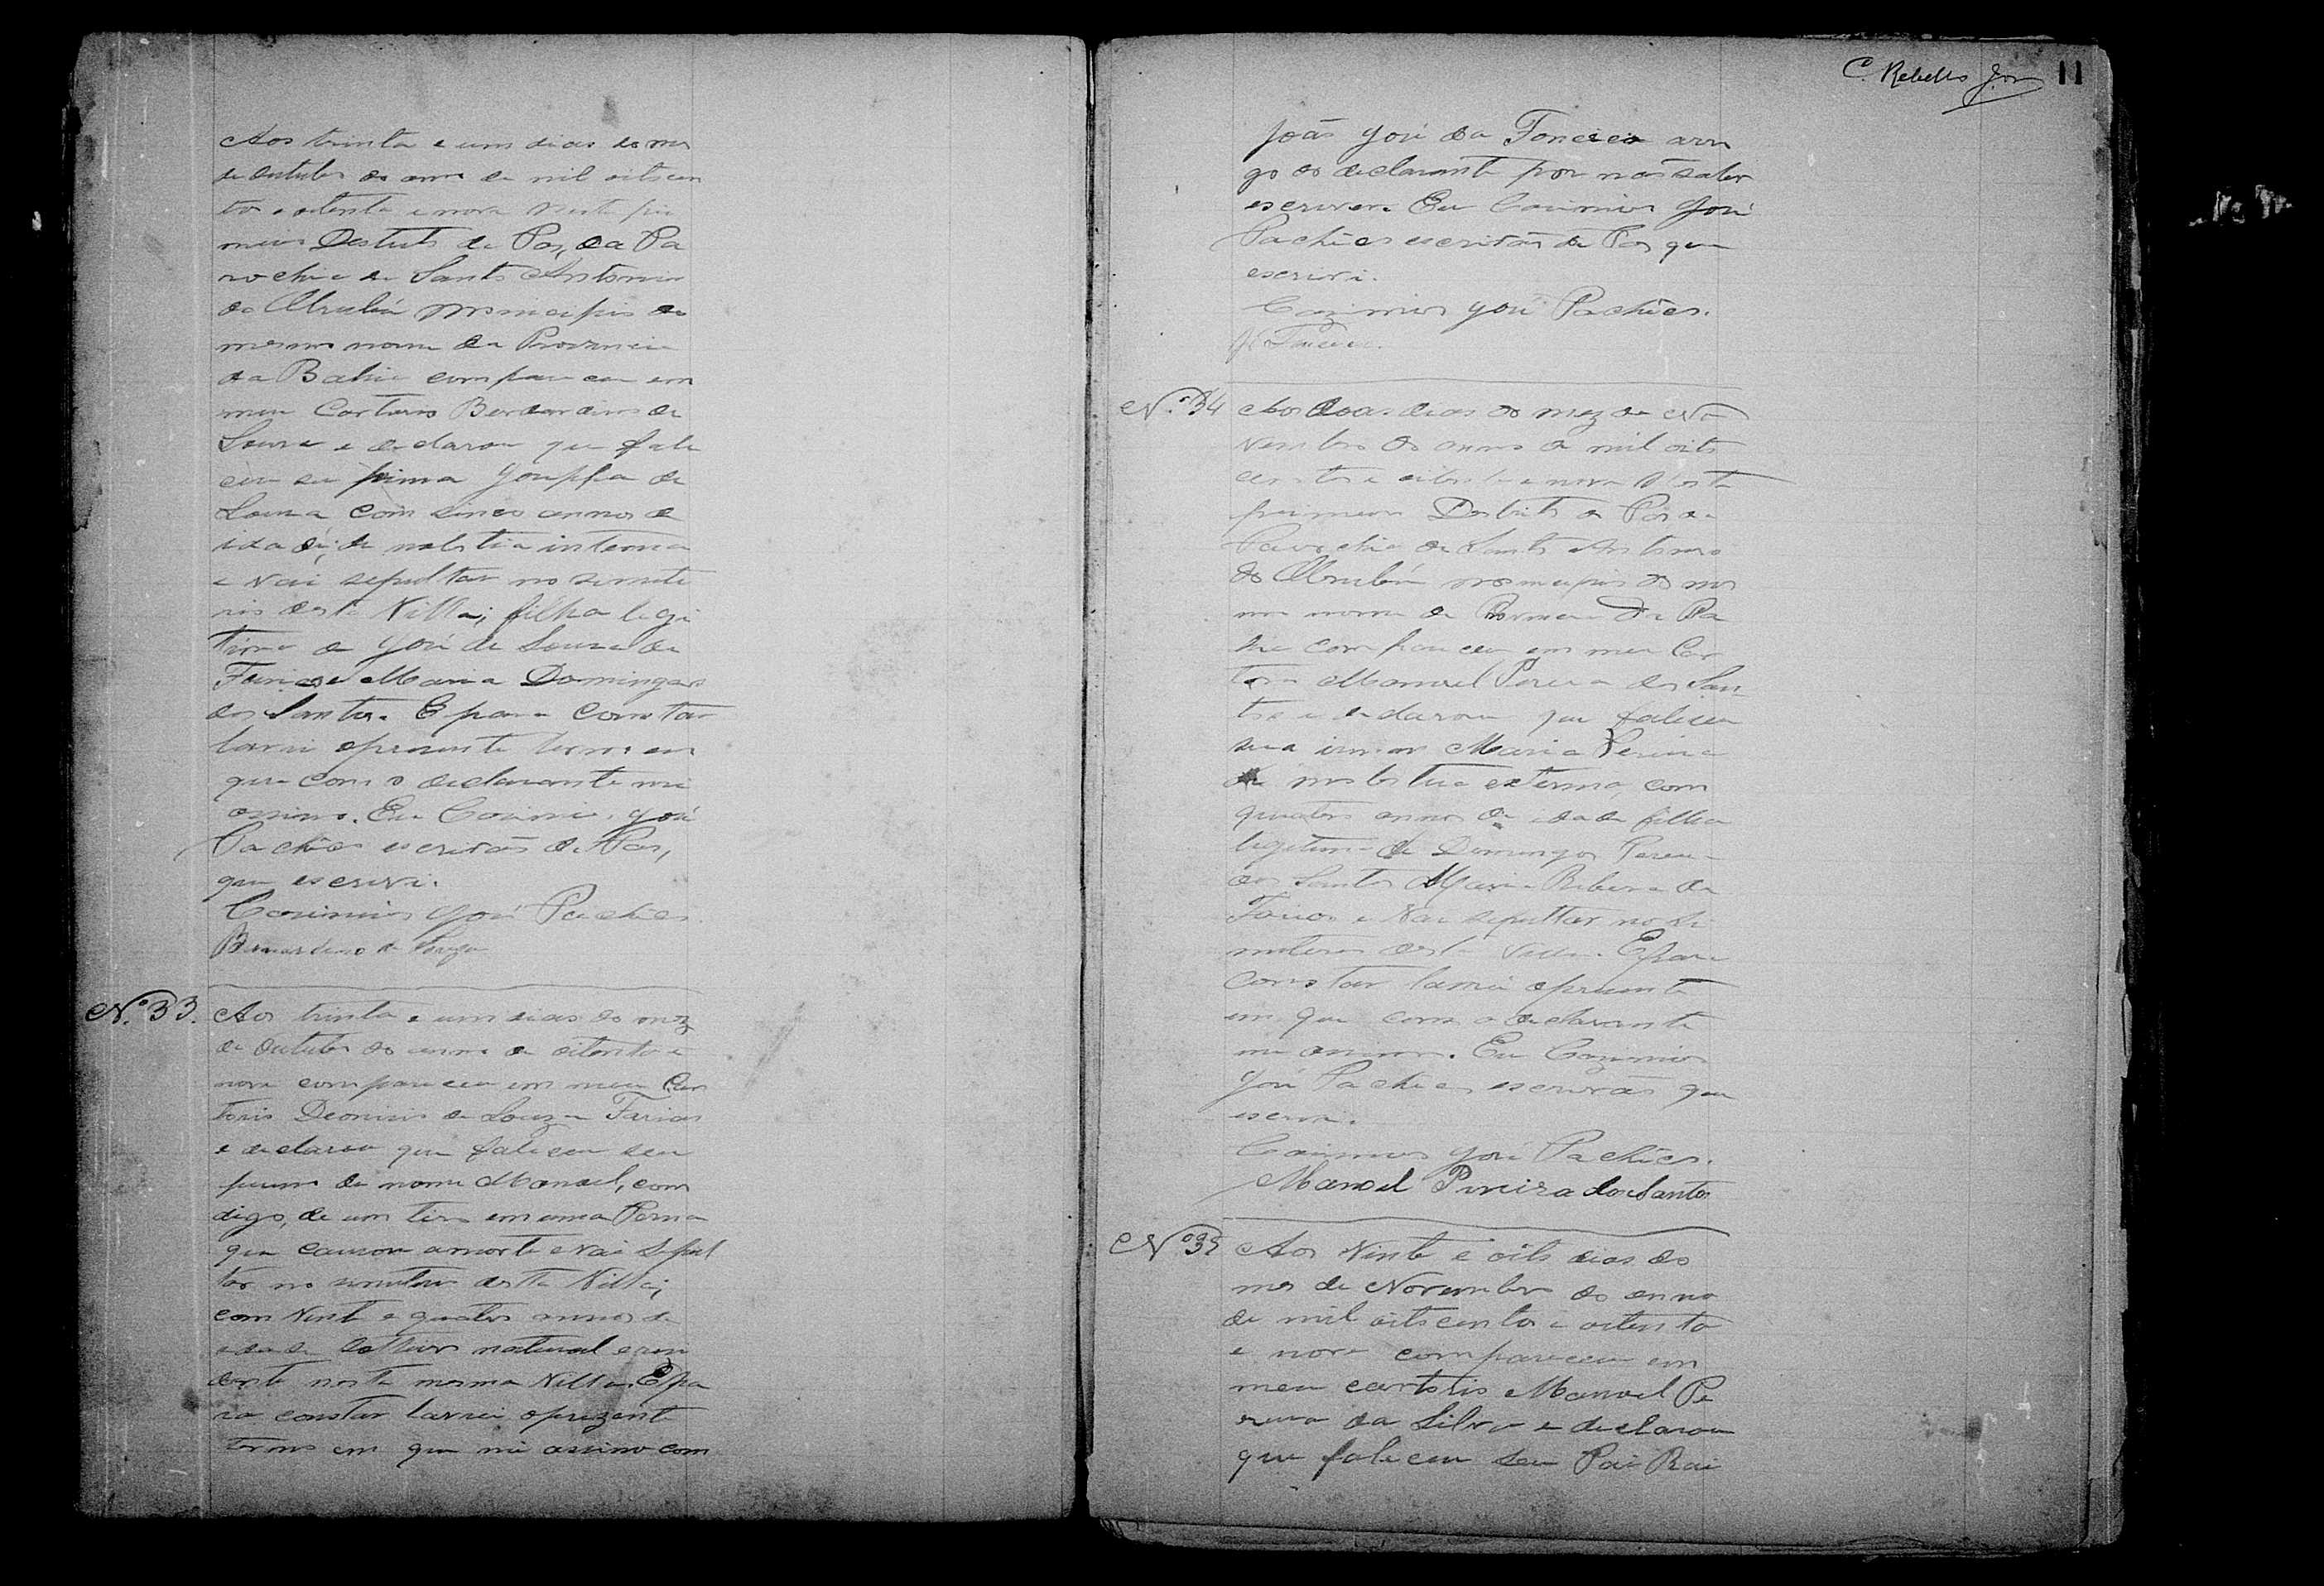 Aos trinta e um dias do mes
de Outubro do anno de mil oitocen
tos e oitenta e nove Neste pri
meiro Destrito de Paz, da Pa
rochia de Santo Antonio
do municipio do
mesmo nome da Provincia
da Bahia compareceu em
meu Cartorio Bernardino de
Souza e declarou que fale
ceu sua prima Josepha de
Souza com sinco annos de
idade, de molestia interna
e vai sepultar no semite
rio desta Villa; filha legi
tima de José de Souza de
Farias e Maria Domingas
dos Santos. E para constar
lavrei o presente termo em
que com o declarante me
assino. Eu Casimiro José
Pachêco escrivão de Pas,
que escrevi.
Casimiro José Pachêco
Bernardino de Souza
Nº 33. Aos trinta e um dias do mez
de Outubro do anno de oitenta e
nove compareceu em meu Car
torio Deonisio de Souza Farias
e declarou que faleceu seu
primo de nome Manoel, com
digo, de um tiro em uma Perna
que causou a morte e vai sepul
tar no semiterio desta Villa;
com vinte e quatro annos de
idade solteiro natural e resi
dente nesta mesma Villa. E pa
ra constar lavrei o prezente
termo em que me assino com
C. Rebello Jor 11
João José da Fonceca arro
go do declarante por não saber
escrever. Eu Casimiro José
Pachêco escrivão de Pas que
escrevi.
Cazimiro José Pachêco.
Fonceca.
Nº 34 Aos doas dias do mez de No
vembro do anno de mil oito
centos e oitenta e nove Nesta
primeiro Destrito de Pas da
Parochia de Santo Antonio
do municipio do mes
mo nome da Provincia da Ba
hia compareceu em meu Car
torio Manoel Pereira dos San
tos e declarou que faleceu
sua irman Maria Pereira
de molestia externa, com
quatro annos de idade filha
legitima de Domingos Pereira
dos Santos Maria Ribeira de
Farias e vai sepultar no Si
miterio desta Villa. E para
constar lavrei o presente
em que com o declarante
me assino. Eu Casimiro
José Pachêco escrivão que
escrevi.
Casimiro José Pachêco.
Manoel Pereira dos Santos
Nº 35 Aos vinte e oito dias do
mes de Novembro do anno
de mil oitocentos e oitenta
e nove compareceu em
meu cartorio Manoel Pe
reira da Silva e declarou
que faleceu seu Pai Rai